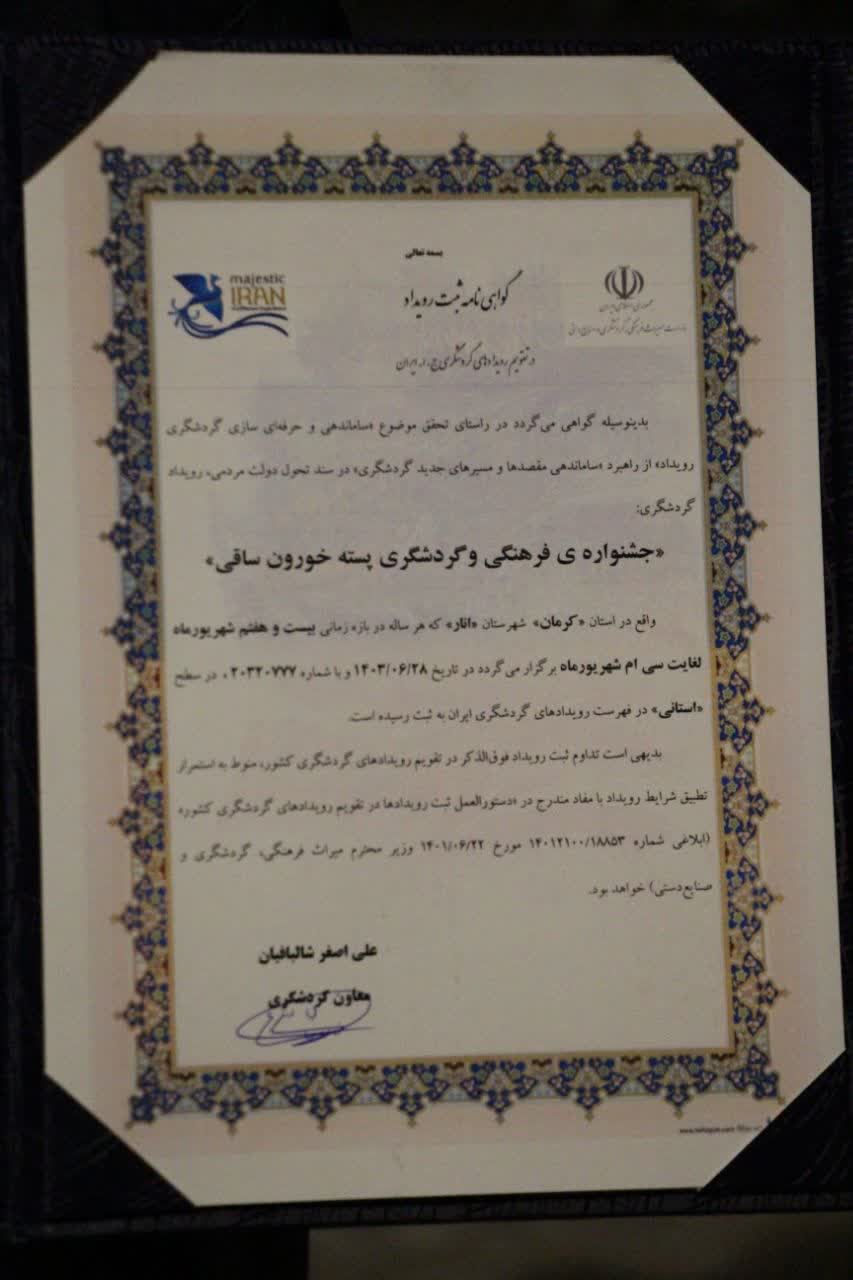 بسمه تعالی
majestic
IRAN
گواهی نامه ثبت رویداد
جمهوری اسلامی ایران
وزارت میراث فرهنگی، گردشگری و صنایع دستی
در تقویم رویدادهای گردشگری ج.ا. ایران
بدینوسیله گواهی می‌گردد در راستای تحقق موضوع «ساماندهی و حرفه‌ای سازی گردشگری
رویداد» از راهبرد «ساماندهی مقصدها و مسیرهای جدید گردشگری» در سند تحول دولت مردمی، رویداد
گردشگری:
«جشنواره ی فرهنگی وگردشگری پسته خورون ساقی»
واقع در استان «کرمان» شهرستان «انار» که هر ساله در بازه زمانی بیست و هفتم شهریورماه
لغایت سی ام شهریورماه برگزار می‌گردد در تاریخ ۱۴۰۳/۰۶/۲۸ و با شماره ۲۰۳۲۰۷۷۷ ، در سطح
«استانی» در فهرست رویدادهای گردشگری ایران به ثبت رسیده است.
بدیهی است تداوم ثبت رویداد فوق‌الذکر در تقویم رویدادهای گردشگری کشور، منوط به استمرار
تطبیق شرایط رویداد با مفاد مندرج در «دستورالعمل ثبت رویدادها در تقویم رویدادهای گردشگری کشور»
(ابلاغی شماره ۱۴۰۱۲۱۰۰/۱۸۸۵۳ مورخ ۱۴۰۱/۰۶/۲۲ وزیر محترم میراث فرهنگی، گردشگری و
صنایع‌دستی) خواهد بود.
علی اصغر شالبافیان
معاون گردشگری